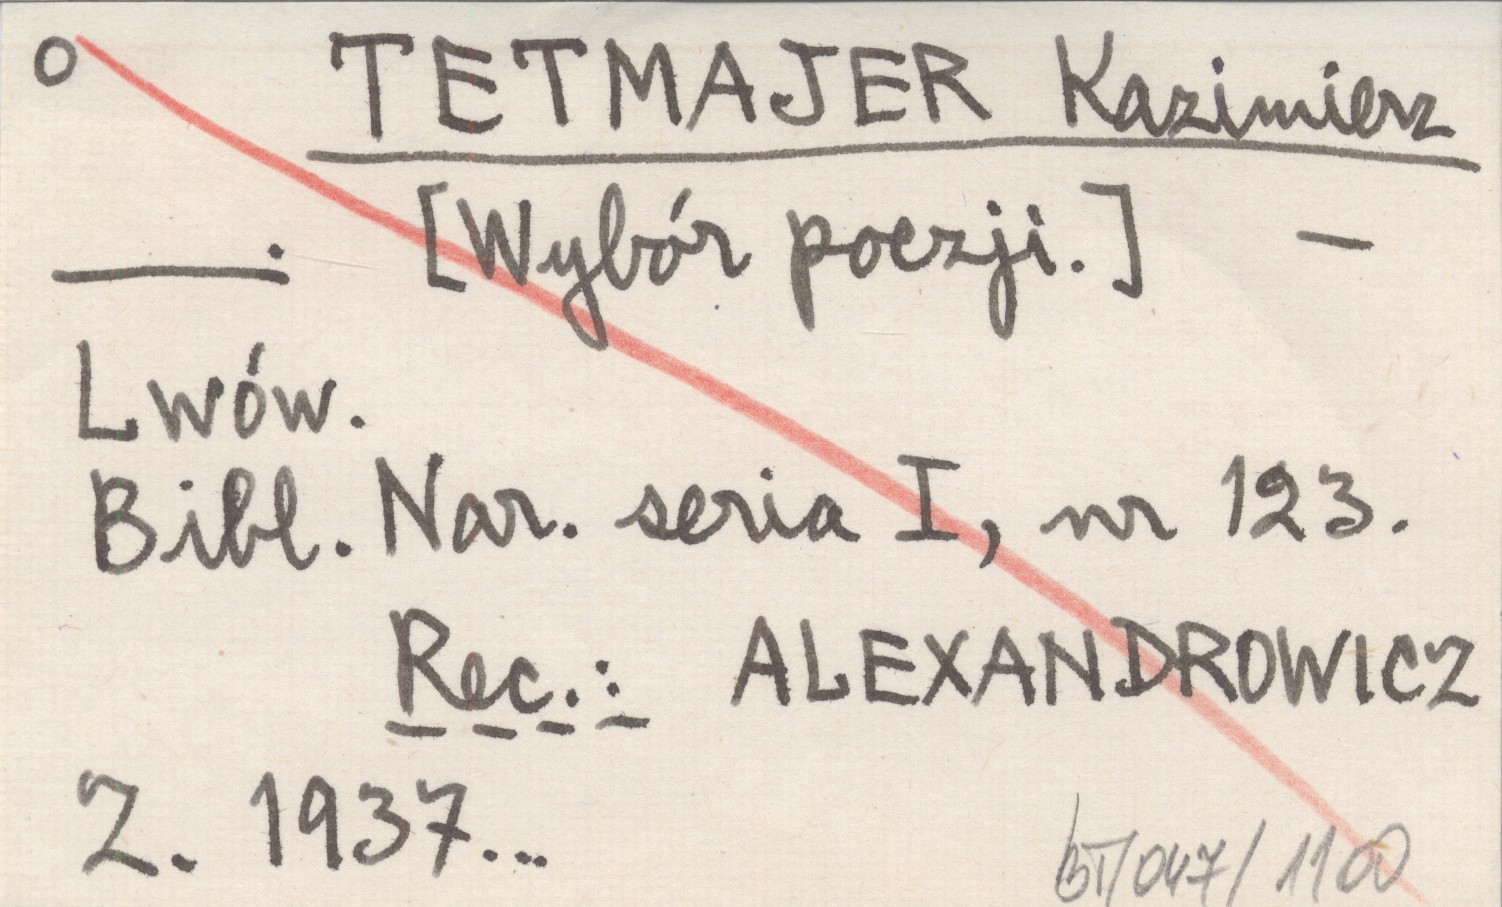 o TETMAJER Kazimierz
—. [Wybór poezji.] —
Lwów.
Bibl. Nar. seria I, nr 123.
Rec.: ALEXANDROWICZ
Z. 1937...